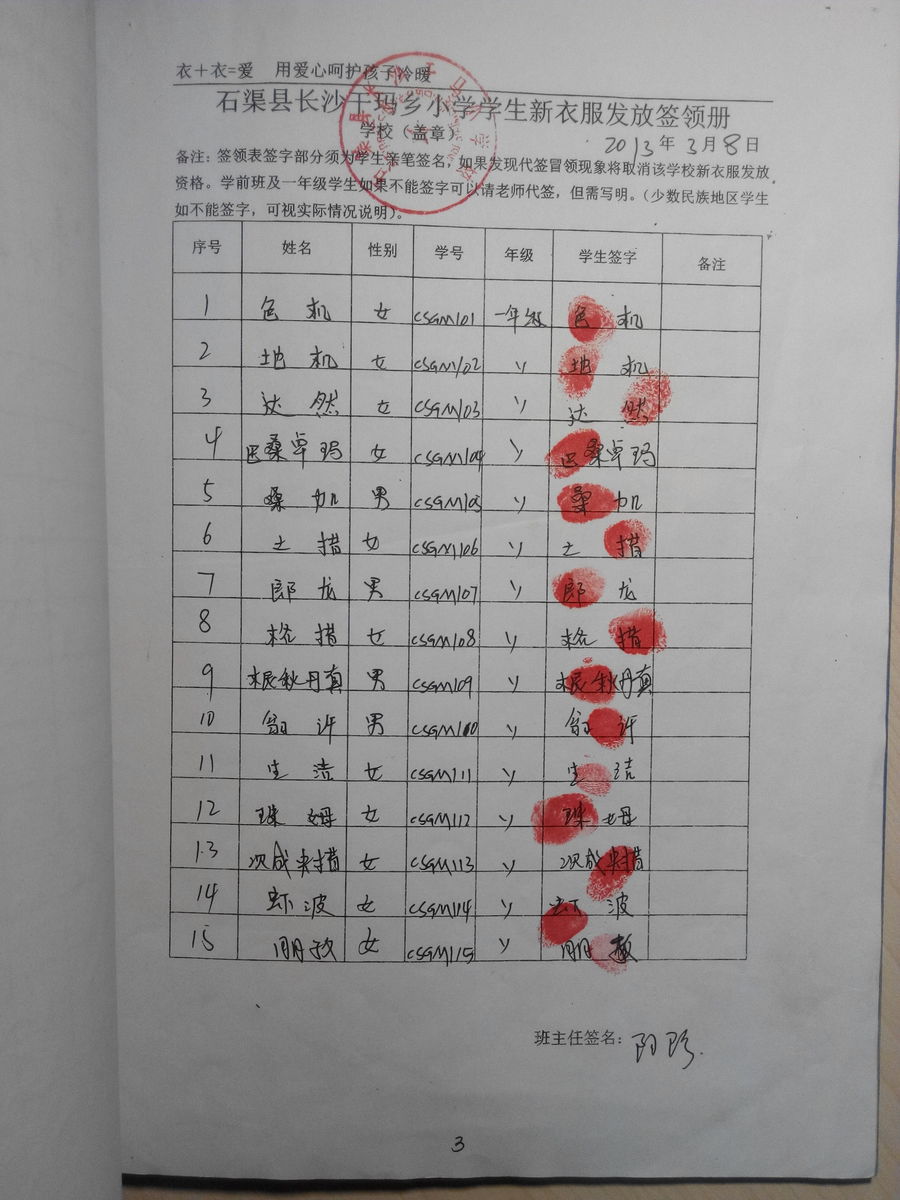 衣＋衣=爱 用爱心呵护孩子冷暖
石渠县长沙干玛乡小学学生新衣服发放签领册
学校（盖章）
2013年3月8日
备注：签领表签字部分须为学生亲笔签名，如果发现代签冒领现象将取消该学校新衣服发放
资格。学前班及一年级学生如果不能签字可以请老师代签，但需写明。（少数民族地区学生
如不能签字，可视实际情况说明）。
序号 姓名 性别 学号 年级 学生签字 备注
1 色机 女 CSGM101 一年级 色机
2 地机 女 CSGM102 〃 地机
3 达然 女 CSGM103 〃 达然
4 巴桑卓玛 女 CSGM104 〃 巴桑卓玛
5 桑加 男 CSGM105 〃 桑加
6 土措 女 CSGM106 〃 土措
7 郎龙 男 CSGM107 〃 郎龙
8 格措 女 CSGM108 〃 格措
9 根秋丹真 男 CSGM109 〃 根秋丹真
10 许 男 CSGM110 〃 许
11 生洁 女 CSGM111 〃 生洁
12 珠姆 女 CSGM112 〃 珠姆
13 次成央措 女 CSGM113 〃 次成央措
14 虾波 女 CSGM114 〃 虾波
15 女 CSGM115 〃
班主任签名：
3